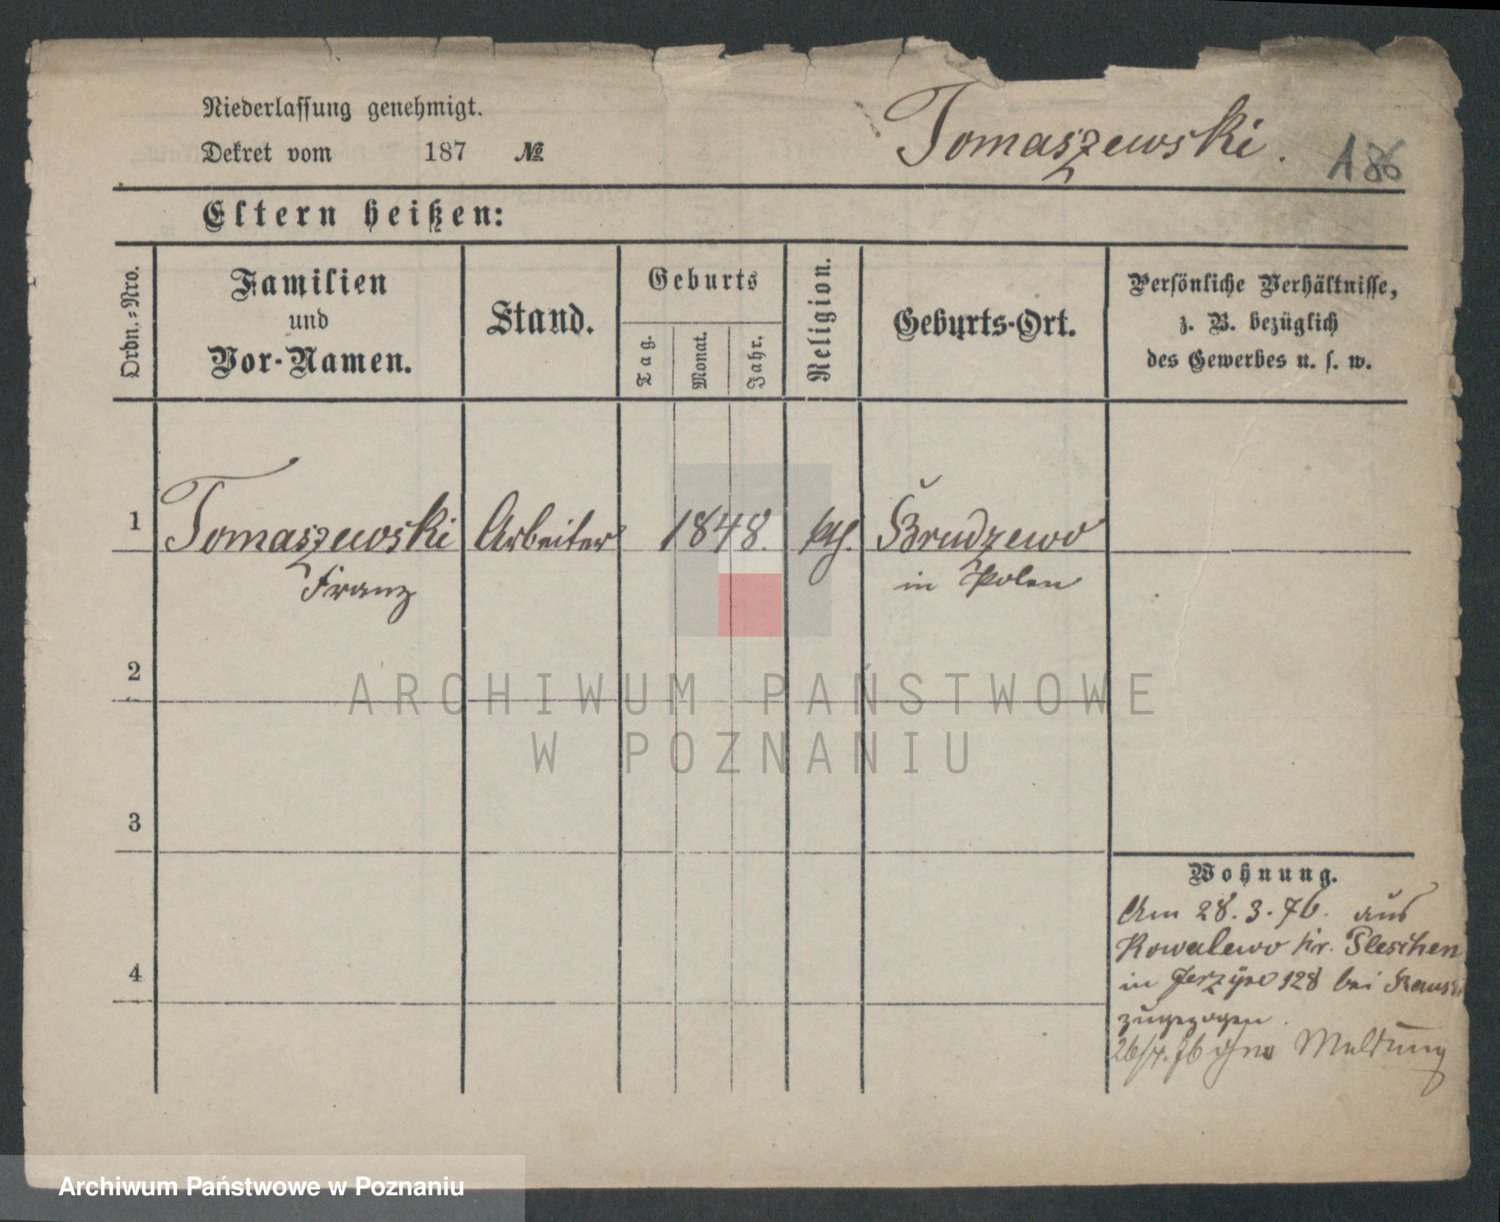 Niederlassung genehmigt.
Dekret vom 187 №
Tomaszewski. 186
Eltern heißen:
Ordn.-Nro.
Familien
und
Vor-Namen.
Stand.
Geburts
Tag.
Monat.
Jahr.
Religion.
Geburts-Ort.
Persönliche Verhältnisse,
z. B. bezüglich
des Gewerbes u. s. w.
1 Tomaszewski Arbeiter 1848. kth. Brudzewo
Franz in Polen
2
3
4
Wohnung.
Am 28.3.76. aus
Kowalewo Kr. Pleschen
in Jerzyce 128 bei
zugezogen.
26/4.76 ohne Meldung
ARCHIWUM PAŃSTWOWE
W POZNANIU
Archiwum Państwowe w Poznaniu